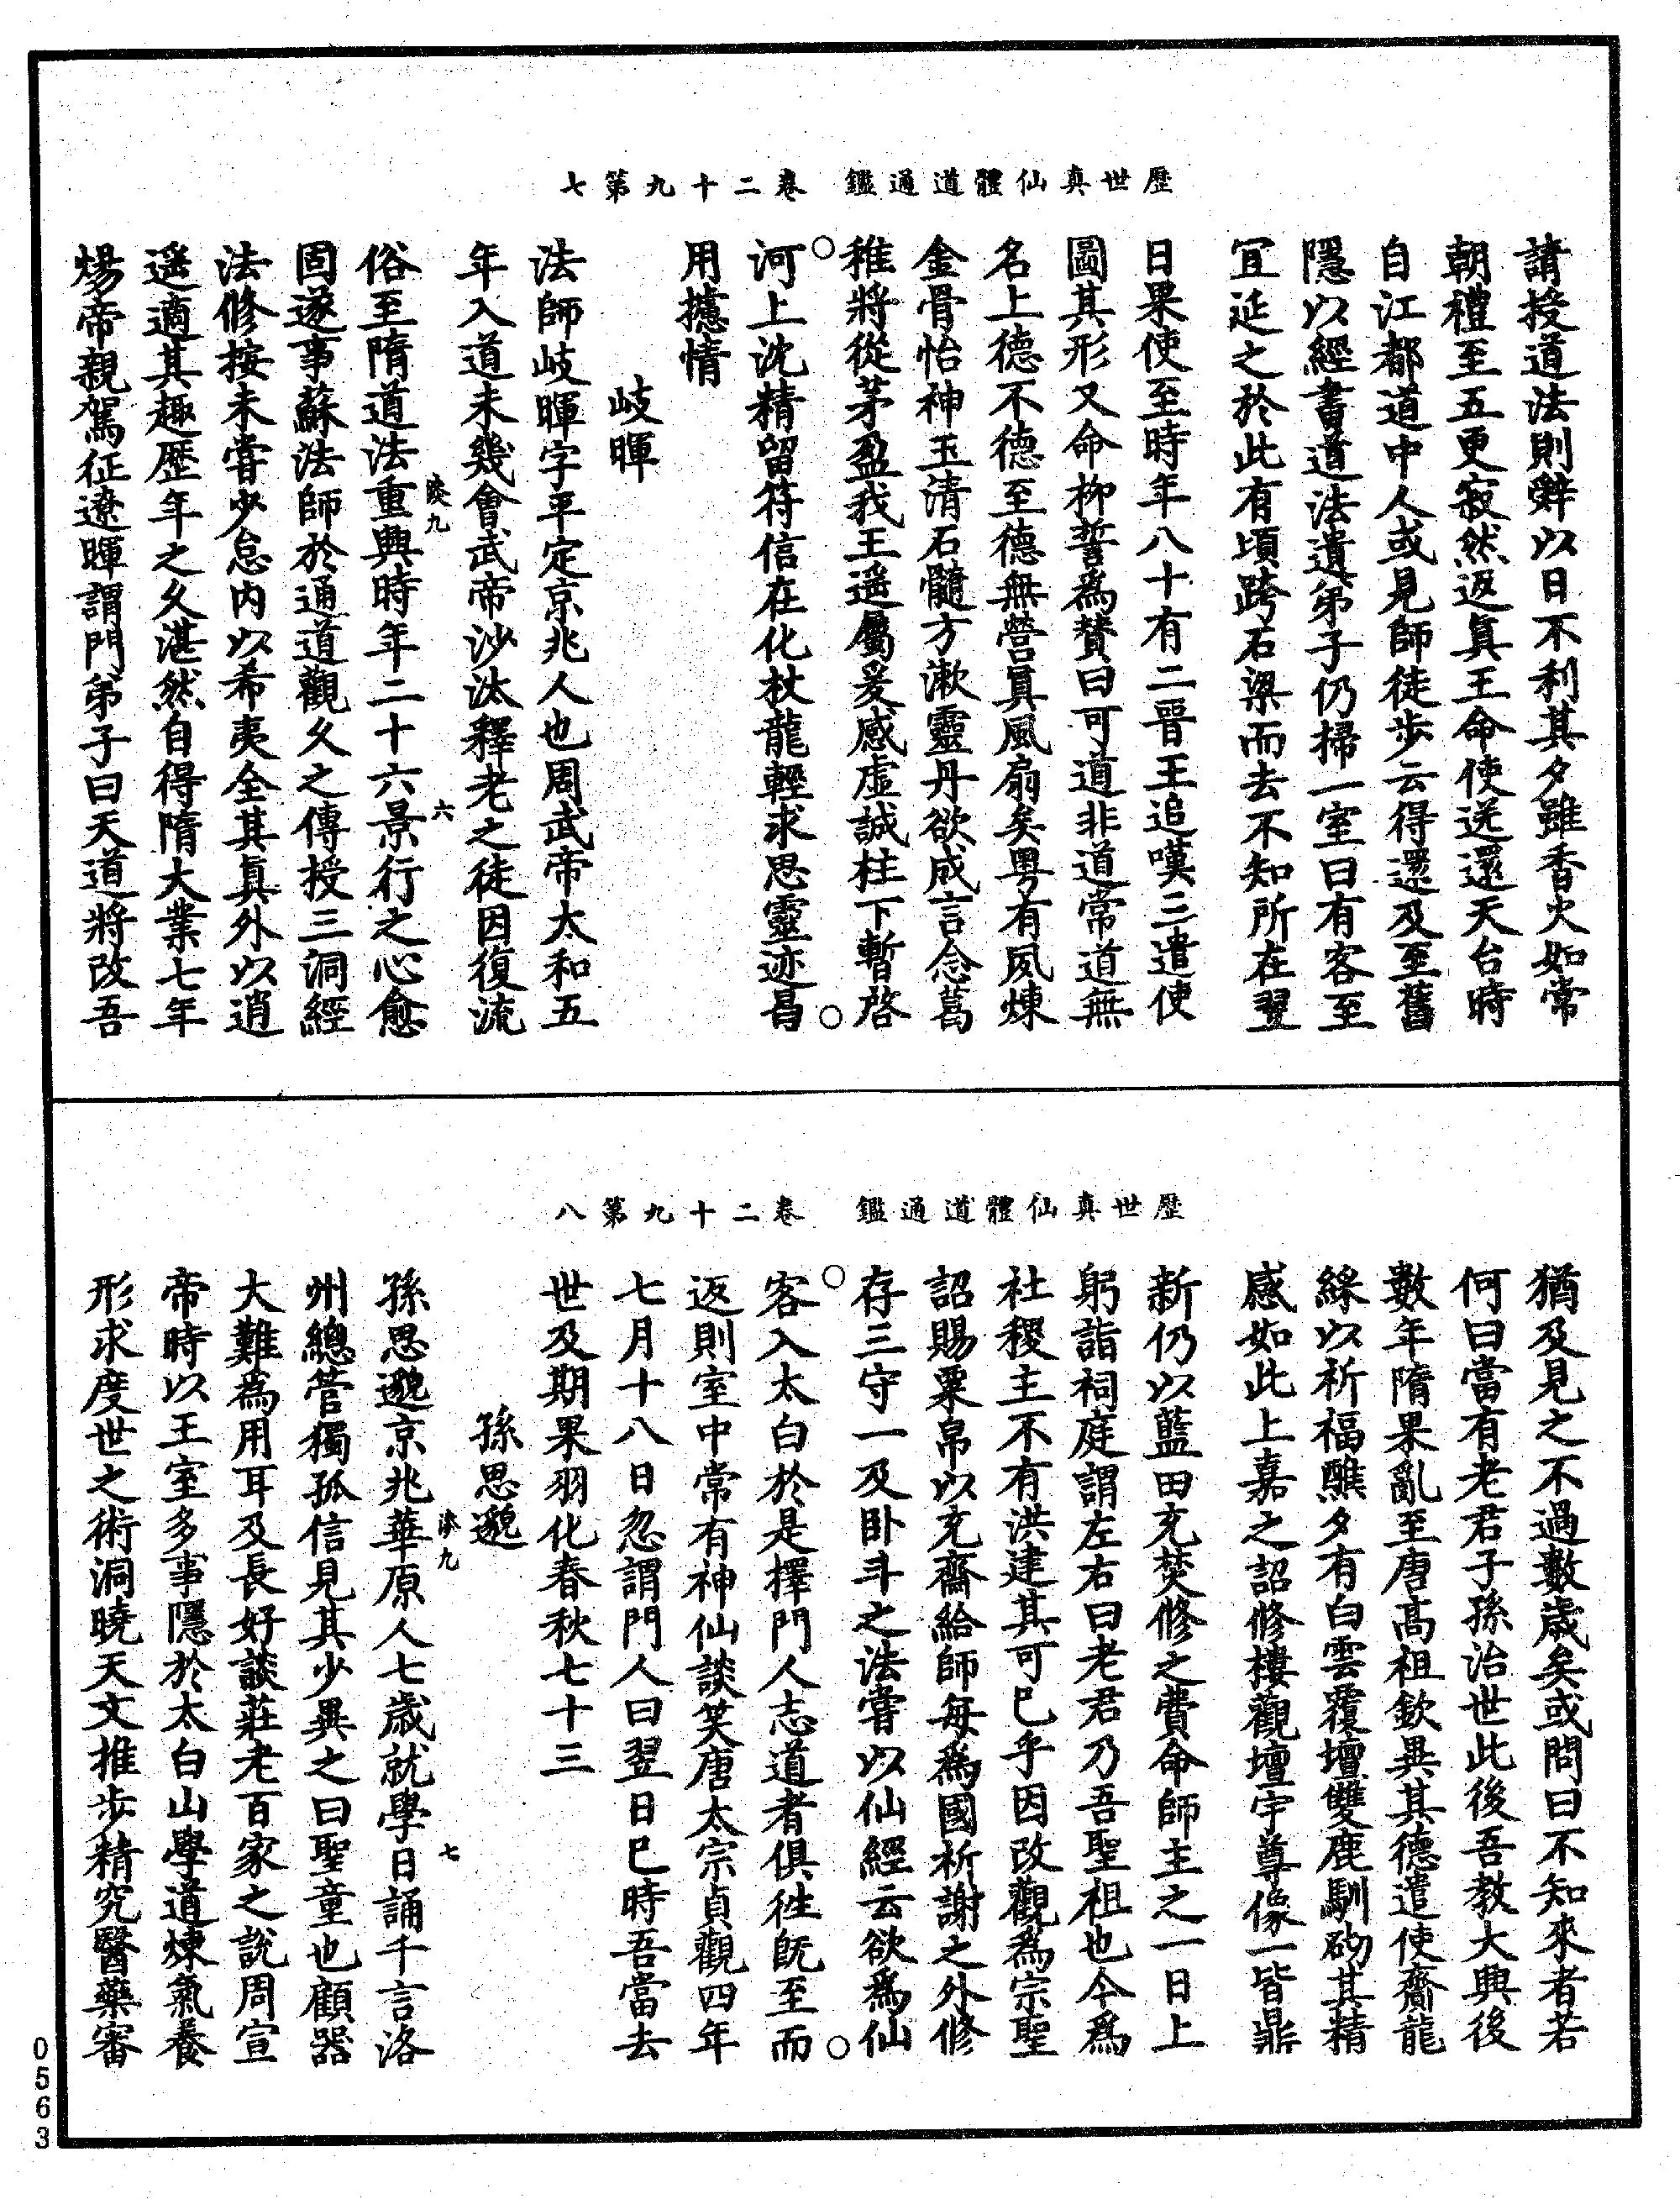 歷世真仙體道通鑑　卷二十九第七
請授道法則辤以日不利其夕雖香火如常
朝禮至五更寂然返真王命使送還天台時
自江都道中人或見師徒步云得還及至舊
隱以經書道法遺弟子仍掃一室曰有客至
宜延之於此有頃跨石梁而去不知所在翌
日果使至時年八十有二晉王追嘆三遣使
圖其形又命柳䛒為贊曰可道非道常道無
名上德不德至德無營真風扇矣粤有夙煉
金骨怡神玉清石髓方漱靈丹欲成言念葛
稚將從茅盈我王遥屬爰感虛誠柱下暫啓
河上沈精留符信在化杖龍輕求思靈迹曷
用攄情
岐暉
法師岐暉字平定京兆人也周武帝太和五
年入道未幾會武帝沙汰釋老之徒因復流
俗至隋道法重興時年二十六景行之心愈
淡九　六
固遂事蘇法師於通道觀久之傳授三洞經
法修按未嘗少怠內以希夷全其真外以逍
遥適其趣歷年之久湛然自得隋大業七年
煬帝親駕征遼暉謂門弟子曰天道將改吾
歷世真仙體道通鑑　卷二十九第八
猶及見之不過數歲矣或問曰不知來者若
何曰當有老君子孫治世此後吾教大興後
數年隋果亂至唐高祖欽異其德遣使齎龍
綵以祈福醮夕有白雲覆壇雙鹿馴砌其精
感如此上嘉之詔修樓觀壇宇尊像一皆鼎
新仍以藍田充焚修之費命師主之一日上
躬詣祠庭謂左右曰老君乃吾聖祖也今為
社稷主不有洪建其可已乎因改觀為宗聖
詔賜粟帛以充齋給師每為國祈謝之外修
存三守一及卧斗之法嘗以仙經云欲為仙
客入太白於是擇門人志道者俱徃既至而
返則室中常有神仙談笑唐太宗貞觀四年
七月十八日忽謂門人曰翌日巳時吾當去
世及期果羽化春秋七十三
孫思邈
孫思邈京兆華原人七歲就學日誦千言洛
淡九　七
州總管獨孤信見其少異之曰聖童也顧器
大難為用耳及長好談莊老百家之說周宣
帝時以王室多事隱於太白山學道煉氣養
形求度世之術洞曉天文推步精究醫藥審
0563